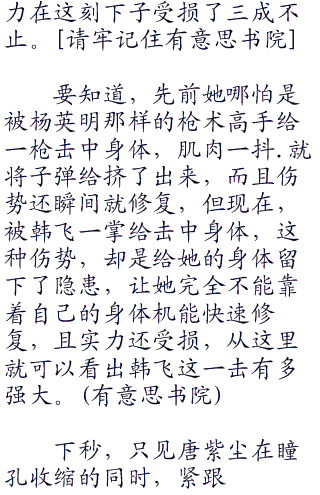 力在这刻下子受损了三成不
止。[请牢记住有意思书院]
要知道，先前她哪怕是
被杨英明那样的枪术高手给
一枪击中身体，肌肉一抖.就
将子弹给挤了出来，而且伤
势还瞬间就修复，但现在，
被韩飞一掌给击中身体，这
种伤势，却是给她的身体留
下了隐患，让她完全不能靠
着自己的身体机能快速修
复，且实力还受损，从这里
就可以看出韩飞这一击有多
强大。(有意思书院)
下秒，只见唐紫尘在瞳
孔收缩的同时，紧跟